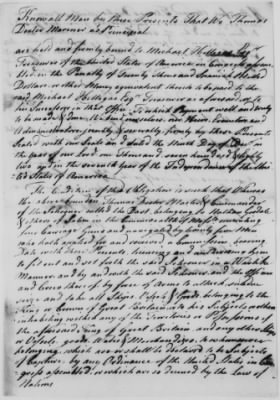 Know all Men by these Presents That We Thomas
Dexter Mariner as Principal
are held and firmly bound to Michael Hillegas Esqr
Treasurer of the United States of America in Congress assem
bled in the Penalty of Twenty Thousand Spanish Milled
Dollars, or other Money equivalent thereto to be paid to the
said Michael Hillegas Esqr Treasurer as aforesaid, or
his Successor in that Office, To which Payment well and truly
to be made & done We bind ourselves, our Heirs, Executors and
Administrators, jointly & severally, firmly by these Presents
Sealed with our Seals and dated the Ninth Day of
in the year of our Lord one Thousand seven hundred & Eighty
two and in the seventh Year of the Independence of the Uni
ted States of America
The Condition of this Obligation is such That Whereas
the above bounden Thomas Dexter Master & Commander
of the Schooner called the belonging to
& others of Salem in the Commonwealth of Massachusetts mounting
four Carriage Guns and navigated by twenty five Men
who hath applied for and received a Commission bearing
Date with these Presents licencing and authorizing him
to fit out and set forth the said Schooner in a Warlike
Manner and by and with the said Schooner and the Officers
and Crew thereof by force of Arms to attack subdue
seize and take all Ships Vessels & Goods belonging to the
King or Crown of Great Britain or to his Subjects or others
inhabiting within any of the Territories or Possessions of
the aforesaid King of Great Britain and any other Ships
or Vessels, goods, Wares & Merchandizes, to whomsoever
belonging, which are or shall be declared to be Subjects
of Capture, by any Ordinance of the United States in Con
gress assembled, or which are so deemed by the Laws of
Nations